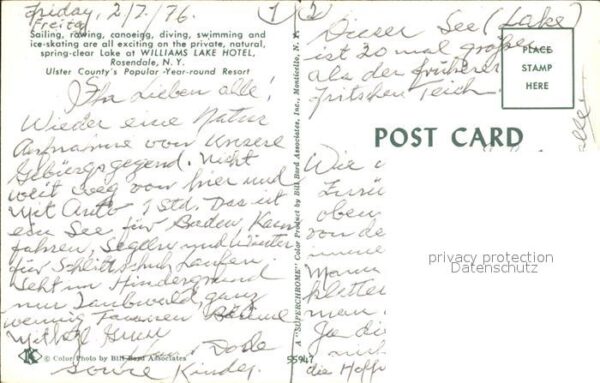 Friday, 2/7./76.
Freitag
Sailing, rowing, canoeing, diving, swimming and
ice-skating are all exciting on the private, natural,
spring-clear Lake at WILLIAMS LAKE HOTEL,
Rosendale, N. Y.
Ulster County's Popular Year-round Resort
Ihr Lieben alle!
Wieder eine Natur
Aufnahme von unsere
Gebürgsgegend. Nicht
weit weg von hier und
Mit Auto 1 Std. Das ist
ein See für Baden, Kann
fahren, Segeln und Winter
für Schlittschuh Laufen.
Seht im Hindergrund
nur Laubwald, ganz
wennig Tannen Bäume
Mit
sowie Kinder.
K © Color Photo by Bill Bard Associates
A "SUPERCHROME" Color Product by Bill Bard Associates, Inc., Monticello, N. Y.
55947
1 2
Dieser See (Lake)
ist 20 mal größer
als der früherer
Fritschen Teich.
PLACE
STAMP
HERE
POST CARD
Wie
Zurück
oben
von de
imme
Mann
kletter
man
die Hoff
alle
privacy protection
Datenschutz